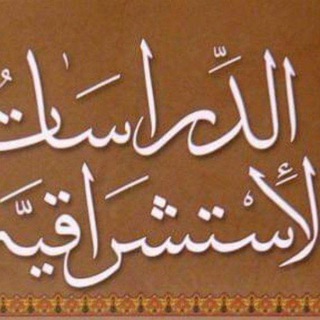 الدّراسَاتُ
الأسْتشراقيَّة